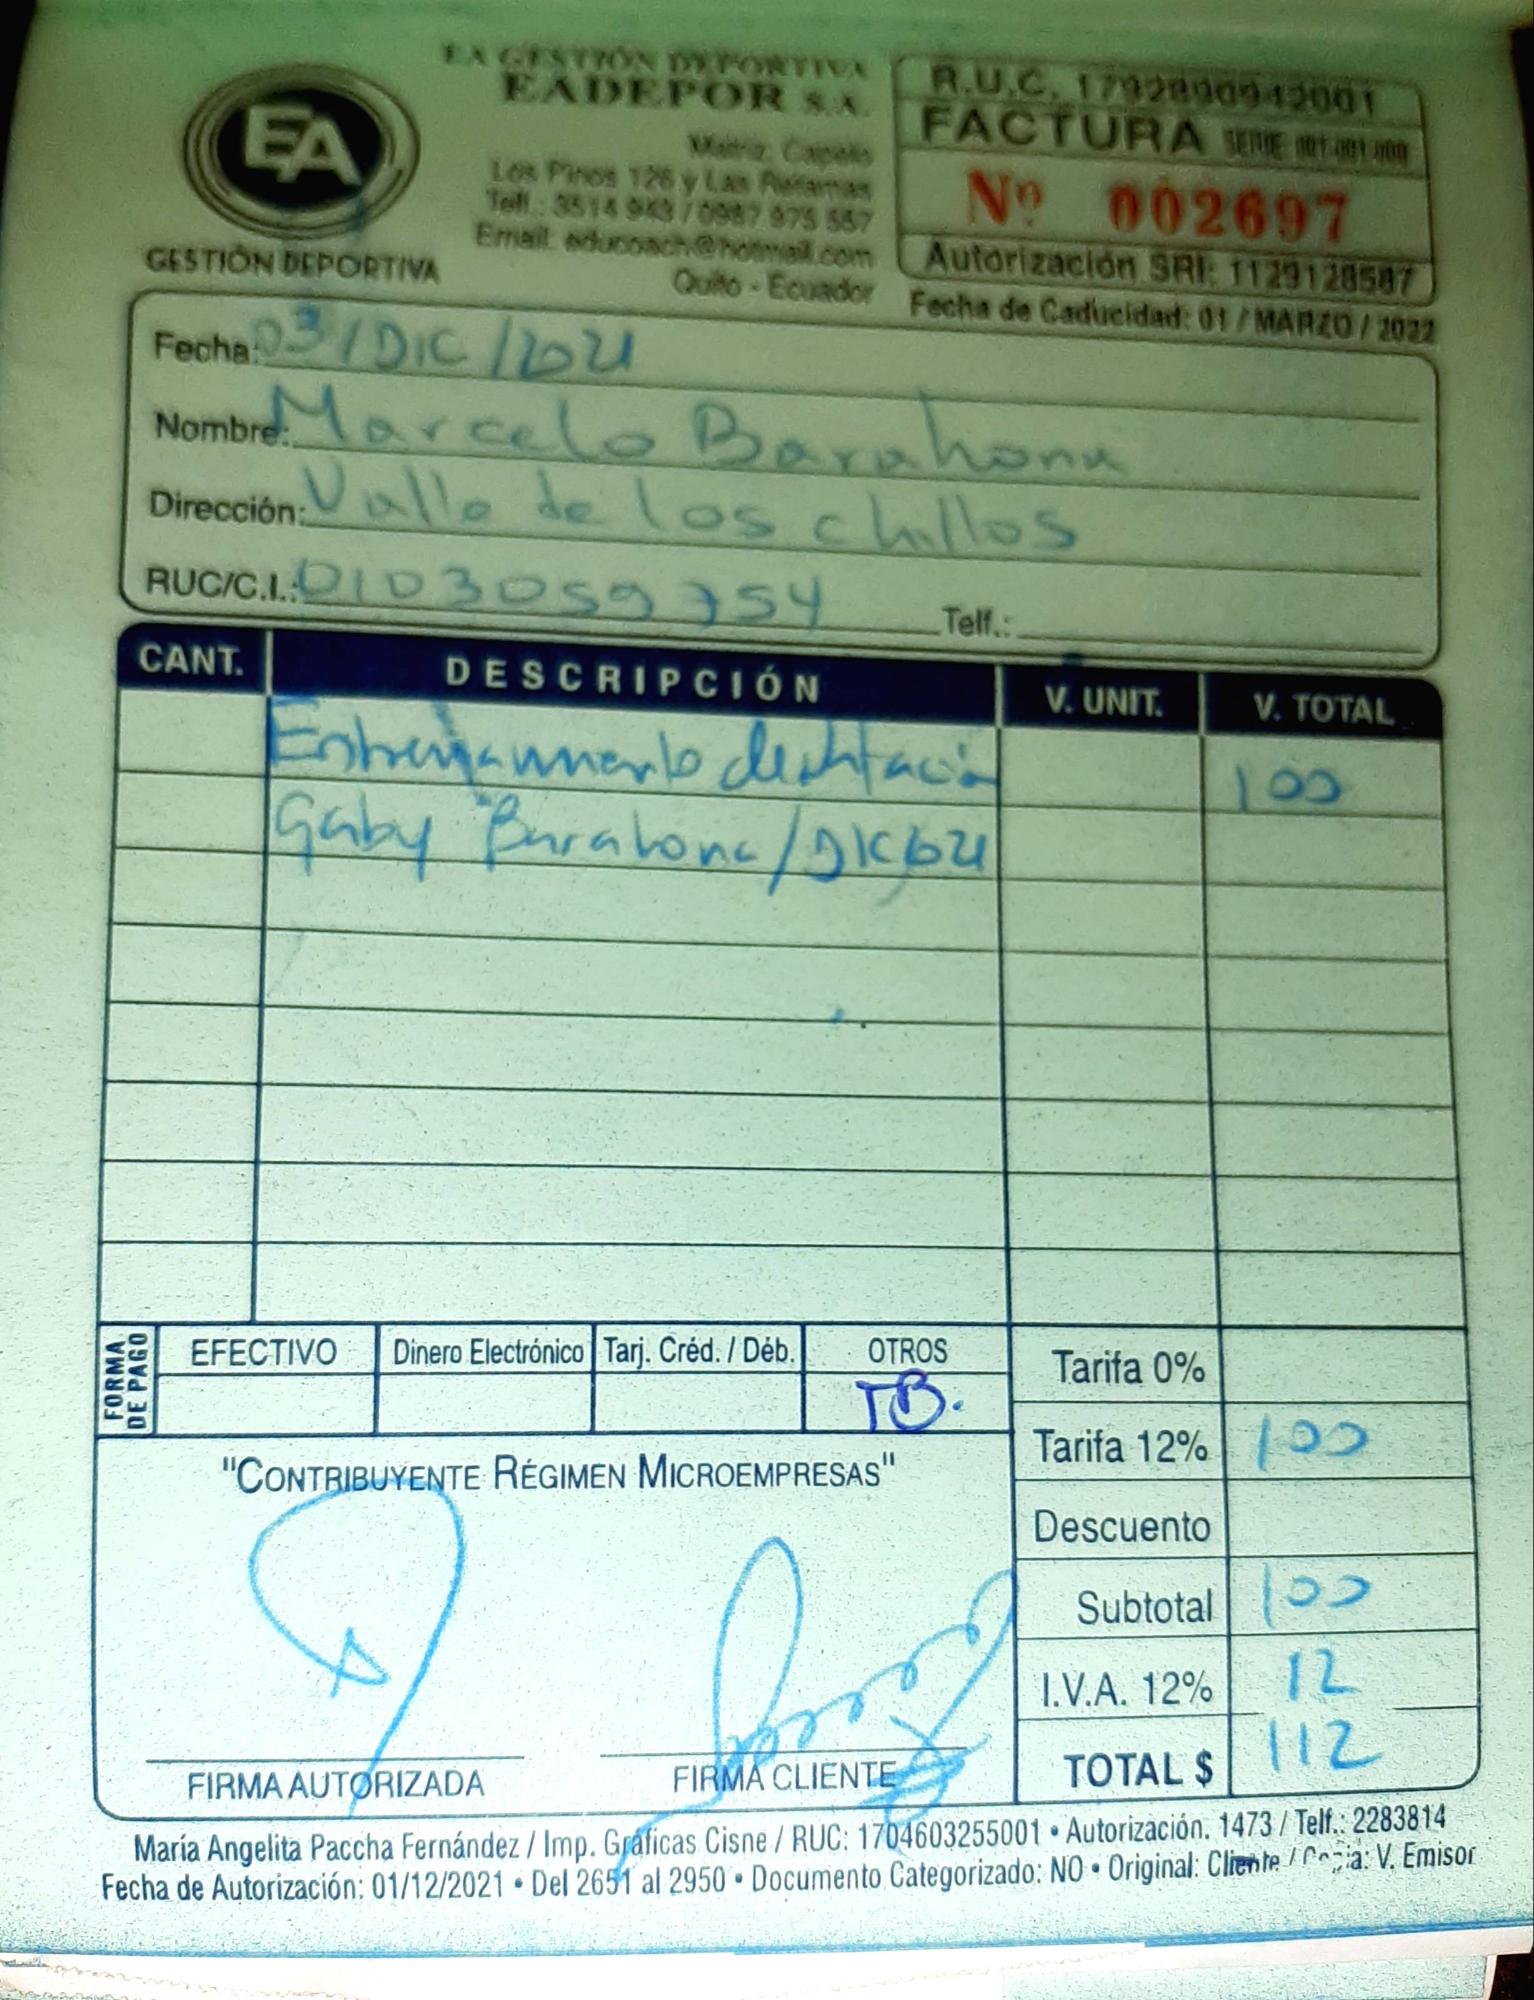 EA GESTIÓN DEPORTIVA
EADEPOR S.A.
EA
GESTIÓN DEPORTIVA
Matriz: Capelo
Los Pinos 126 y Las Retamas
Telf.: 3514 943 / 0987 975 557
Email: educoach@hotmail.com
Quito - Ecuador
R.U.C. 1792890942001
FACTURA SERIE 001-001-000
Nº 002697
Autorización SRI: 1129128587
Fecha de Caducidad: 01 / MARZO / 2022
Fecha: 03/DIC/2021
Nombre: Marcelo Barahona
Dirección: Valle de los chillos
RUC/C.I.: 0103059754 Telf.:
CANT. DESCRIPCIÓN V. UNIT. V. TOTAL
Entrenamiento de natación 100
Gaby Barahona / DIC 2021
FORMA DE PAGO
EFECTIVO Dinero Electrónico Tarj. Créd. / Déb. OTROS
TB.
Tarifa 0%
Tarifa 12% 100
"CONTRIBUYENTE RÉGIMEN MICROEMPRESAS"
Descuento
Subtotal 100
I.V.A. 12% 12
TOTAL $ 112
FIRMA AUTORIZADA FIRMA CLIENTE
María Angelita Paccha Fernández / Imp. Gráficas Cisne / RUC: 1704603255001 • Autorización. 1473 / Telf.: 2283814
Fecha de Autorización: 01/12/2021 • Del 2651 al 2950 • Documento Categorizado: NO • Original: Cliente / Copia: V. Emisor